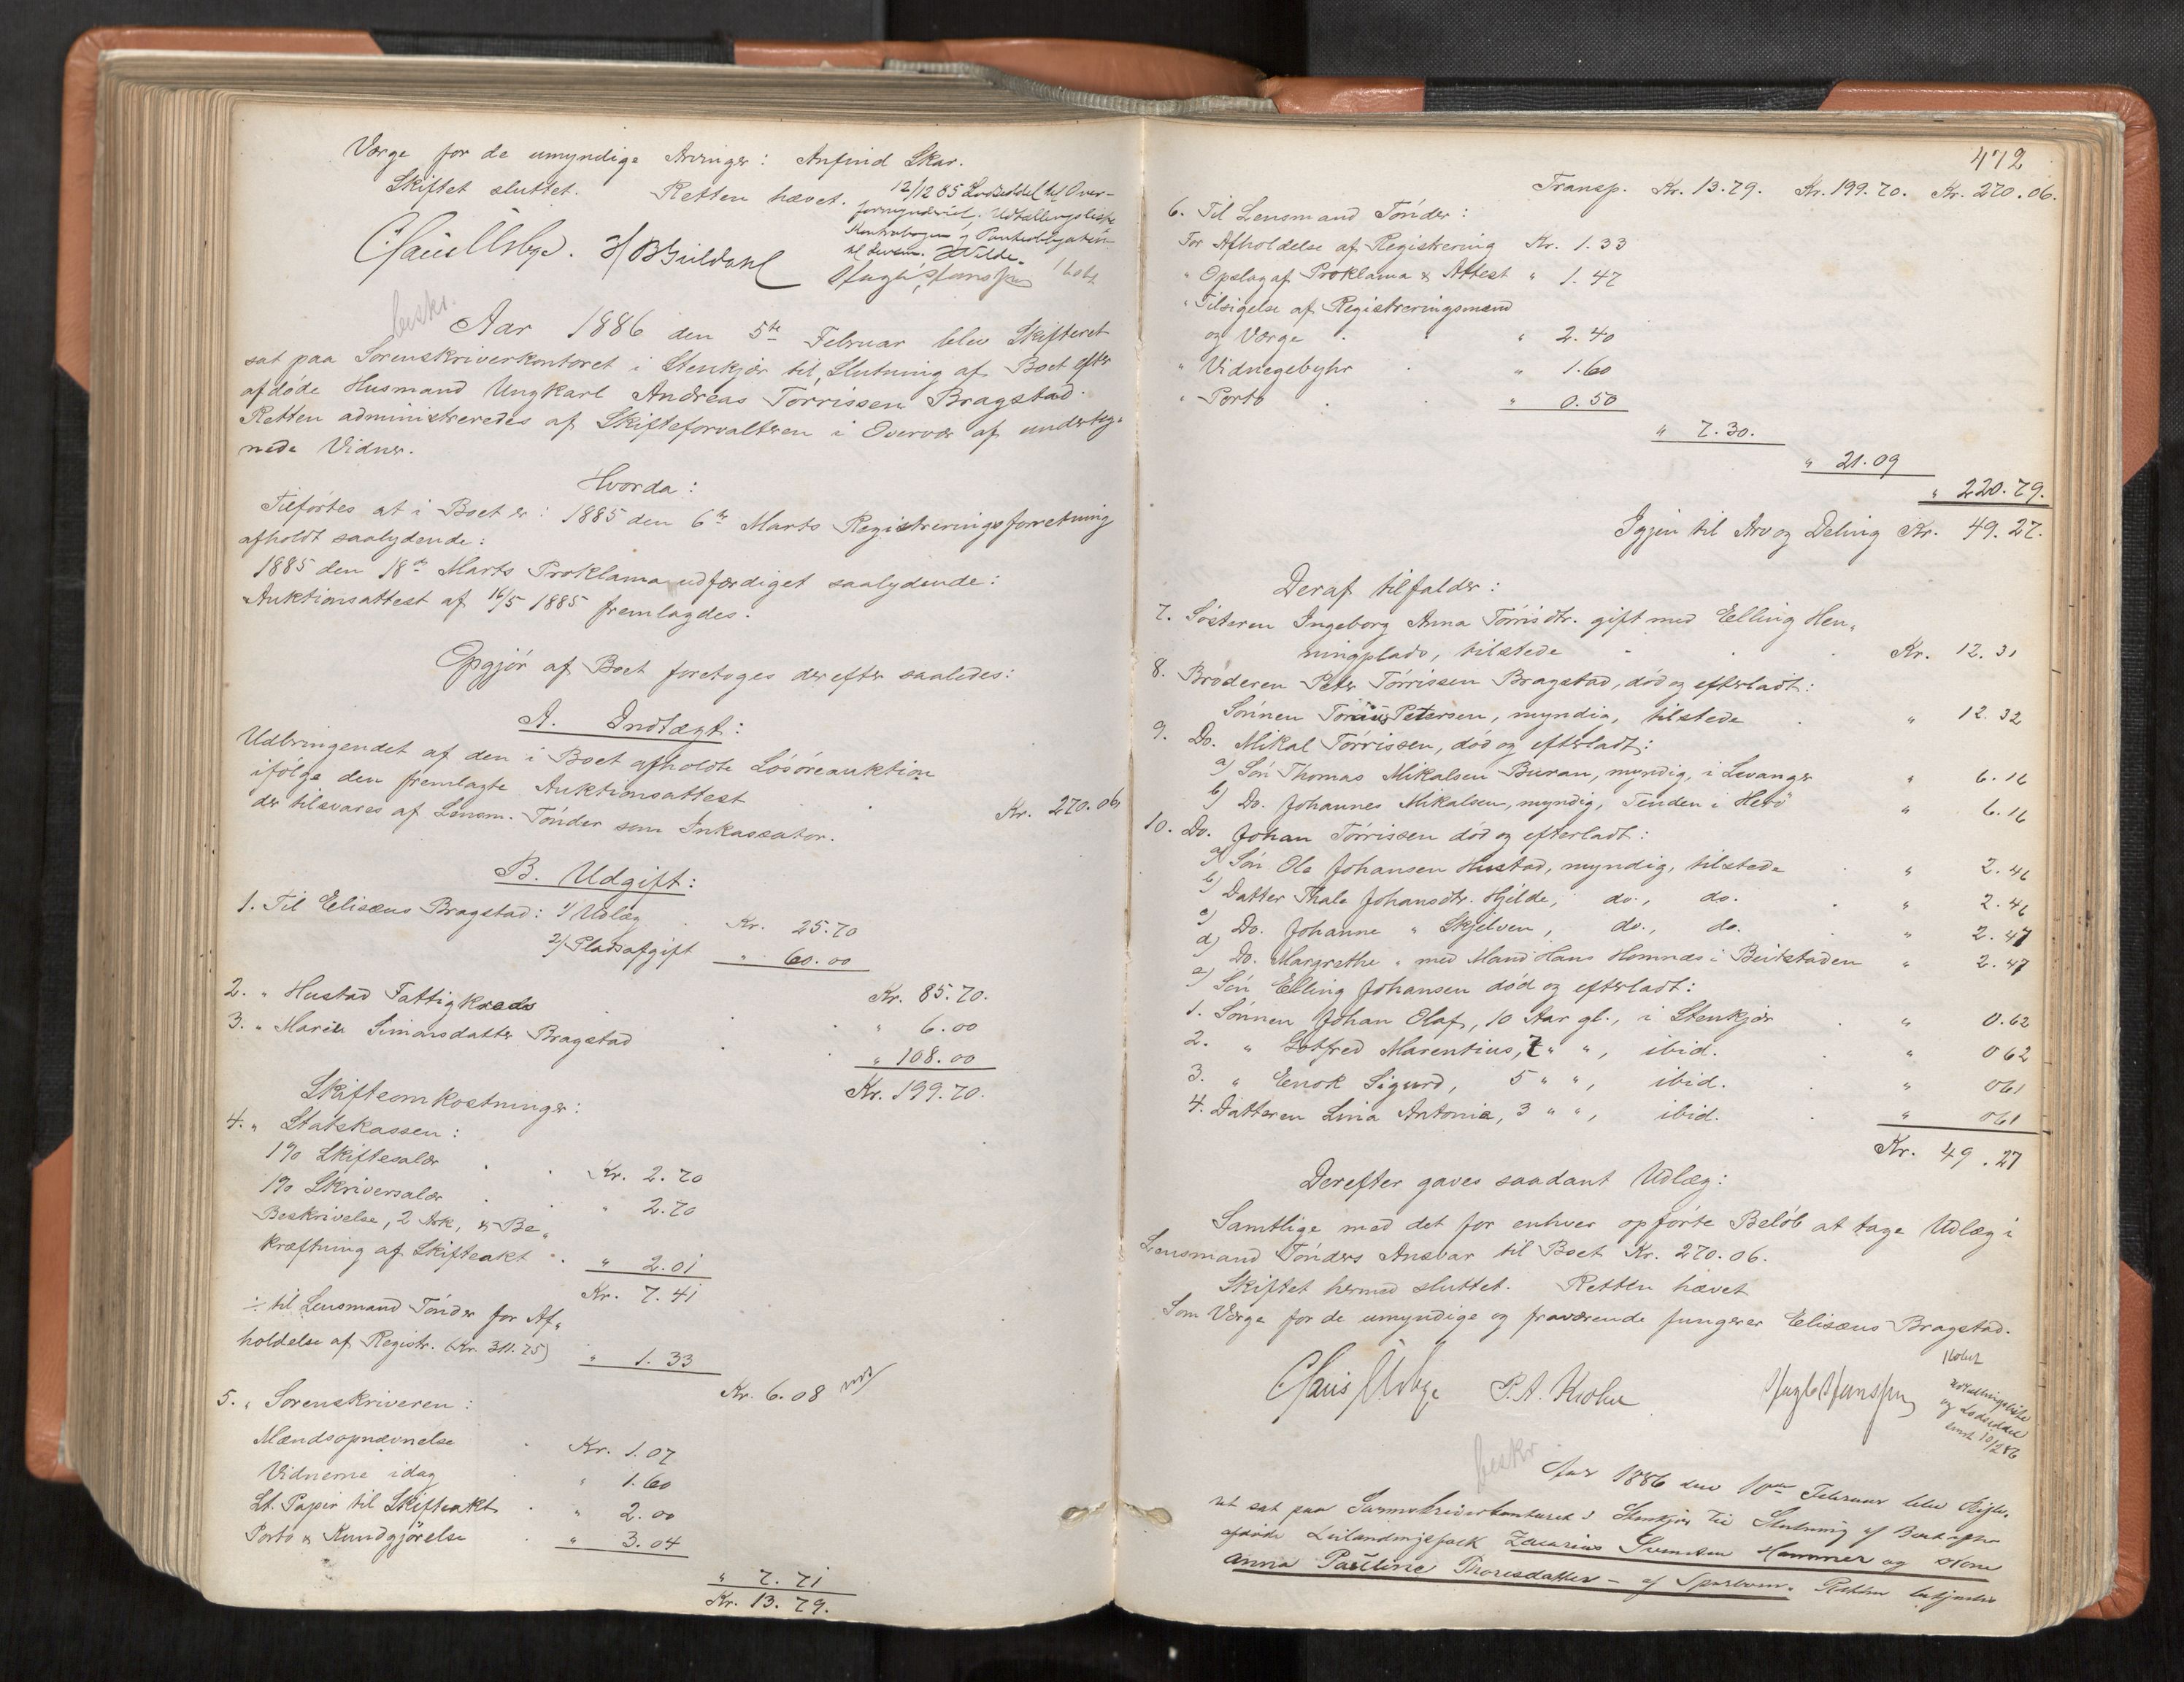 Værge for de umyndige Arvinger: Anfind Skar.
Skiftet sluttet. Retten hævet.
12/12 85 Lodseddel til Over-
formynderiet, Udtællingsliste
Kontrabogen og Pantobligation
til Lensm.
beskr.
Aar 1886 den 5te Februar blev Skifteret
sat paa Sorenskriverkontoret i Stenkjær til Slutning af Boet efter
afdøde Husmand Ungkarl Andreas Tørrissen Bragstad.
Retten administreredes af Skifteforvalteren i Overvær af underteg-
nede Vidner.
Hvorda:
Tilførtes at i Boet er: 1885 den 6te Marts Registreringsforretning
afholdt saalydende:
1885 den 18de Marts Proklama udfærdiget saalydende:
Auktionsattest af 16/5 1885 fremlagdes.
Opgjør af Boet foretoges derefter saaledes:
A. Indtægt:
Udbringendet af den i Boet afholdte Løsøreauktion
ifølge den fremlagte Auktionsattest
der tilsvares af Lensm. Tønder som Inkassator. Kr. 270.06
B. Udgift:
1. Til Elisæus Bragstad: 1) Udlæg Kr. 25.70
2) Pladsafgift " 60.00
Kr. 85.70.
2. " Hustad Fattigkreds " 6.00
3. " Marie Simonsdatter Bragstad " 108.00
Kr. 199.70.
Skifteomkostninger:
4. " Statskassen:
1% Skiftesalær Kr. 2.70
1% Skriversalær " 2.70
Beskrivelse, 2 Ark, & Be„
kræftning af Skifteakt " 2.01
Kr. 7.41
÷ til Lensmand Tønder for Af„
holdelse af Registr. (Kr. 311.75) " 1.33
Kr. 6.08
5. " Sorenskriveren:
Mændsopnævnelse Kr. 1.07
Vidnerne idag " 1.60
St. Papir til Skifteakt " 2.00
Porto & Kundgjørelse " 3.04
" 7.71
Kr. 13.79.
472
Transp. Kr. 13.79. Kr. 199.70. Kr. 270.06.
6. Til Lensmand Tønder:
For Afholdelse af Registrering Kr. 1.33
" Opslag af Proklama & Attest " 1.47
" Tilsigelse af Registreringsmænd
og Værge " 2.40
" Vidnegebyhr " 1.60
" Porto " 0.50
" 7.30.
" 21.09
" 220.79.
Igjen til Arv og Deling Kr. 49.27.
Deraf tilfalder:
7. Søsteren Ingeborg Anna Tørrisdtr. gift med Elling Hen„
ningplads, tilstede Kr. 12.31
8. Broderen Peter Tørrissen Bragstad, død og efterladt:
Sønnen Tørris Petersen, myndig, tilstede " 12.32
9. Do. Mikal Tørrissen, død og efterladt:
a) Søn Thomas Mikalsen Buran, myndig, i Levanger " 6.16
b) Do. Johannes Mikalsen, myndig, Tenden i Herø " 6.16
10. Do. Johan Tørrissen død og efterladt:
a) Søn Ole Johansen Hustad, myndig, tilstede " 2.46
b) Datter Thale Johansdtr. Hjelde, do., do. " 2.46
c) Do. Johanne " Skjelven, do., do. " 2.47
d) Do. Margrethe " med Mand Hans Homnæs i Beitstaden " 2.47
e) Søn Elling Johansen død og efterladt:
1. Sønnen Johan Olaf, 10 Aar gl., i Stenkjær " 0.62
2. " Gotfred Marentius, 7 " ", ibid. " 0 62
3. " Enok Sigurd, 5 " ", ibid. " 0 61
4. Datteren Lina Antonie, 3 " ", ibid. " 0 61
Kr. 49.27
Derefter gaves saadant Udlæg:
Samtlige med det for enhver opførte Beløb at tage Udlæg i
Lensmand Tønders Ansvar til Boet Kr. 270.06.
Skiftet hermed sluttet. Retten hævet
Som Værge for de umyndige og fraværende fungerer Elisæus Bragstad.
Udtællingsliste
og Lodseddel
sendt 10/2 86
beskr
Aar 1886 den Februar blev Skifte„
ret sat paa Sorenskriverkontoret i Stenkjær til Slutning af Boet efter
afdøde Leilændingsfolk Zacarias Svendsen Hammer og Kone
Anna Pauline Thorisdatter - af Sparbuen. Retten betjentes